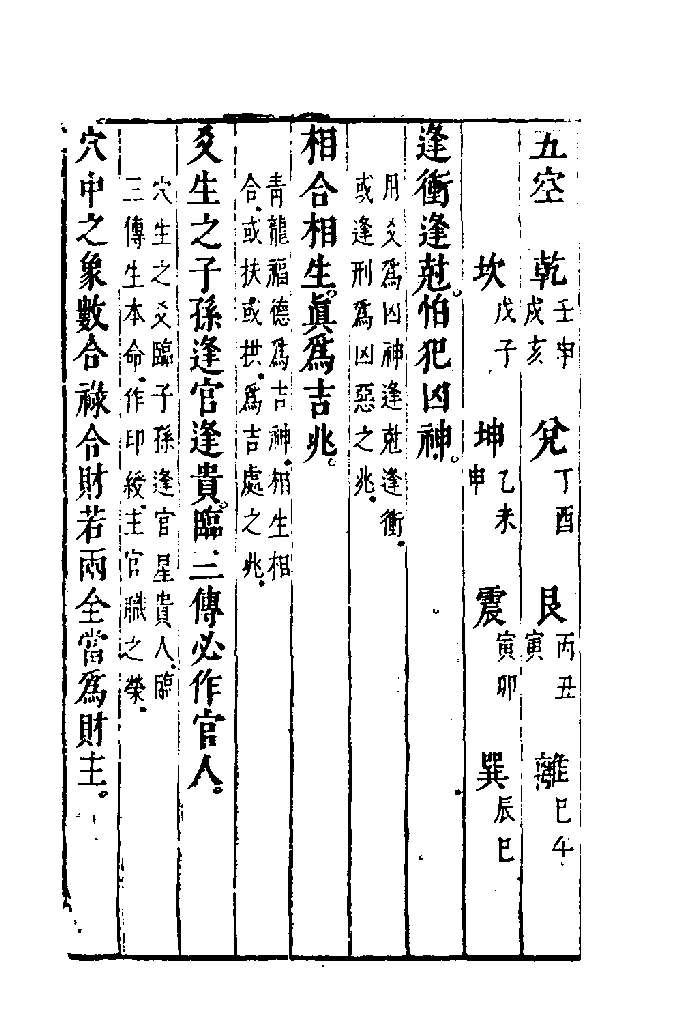 五空　乾壬申戌亥　兌丁酉　艮丙丑寅　離巳午
坎戊子　坤乙未申　震寅卯　巽辰巳
逢衝逢尅。怕犯凶神。
用爻爲凶神逢尅逢衝。
或逢刑爲凶惡之兆。
相合相生。眞爲吉兆。
青龍福德爲吉神。相生相
合。或扶或拱。爲吉處之兆。
爻生之子孫逢官逢貴。臨三傳必作官人。
穴生之爻臨子孫逢官星貴人。臨
三傳生本命。作印綬。主官職之榮。
穴中之象數合祿合財若兩全當爲財主。